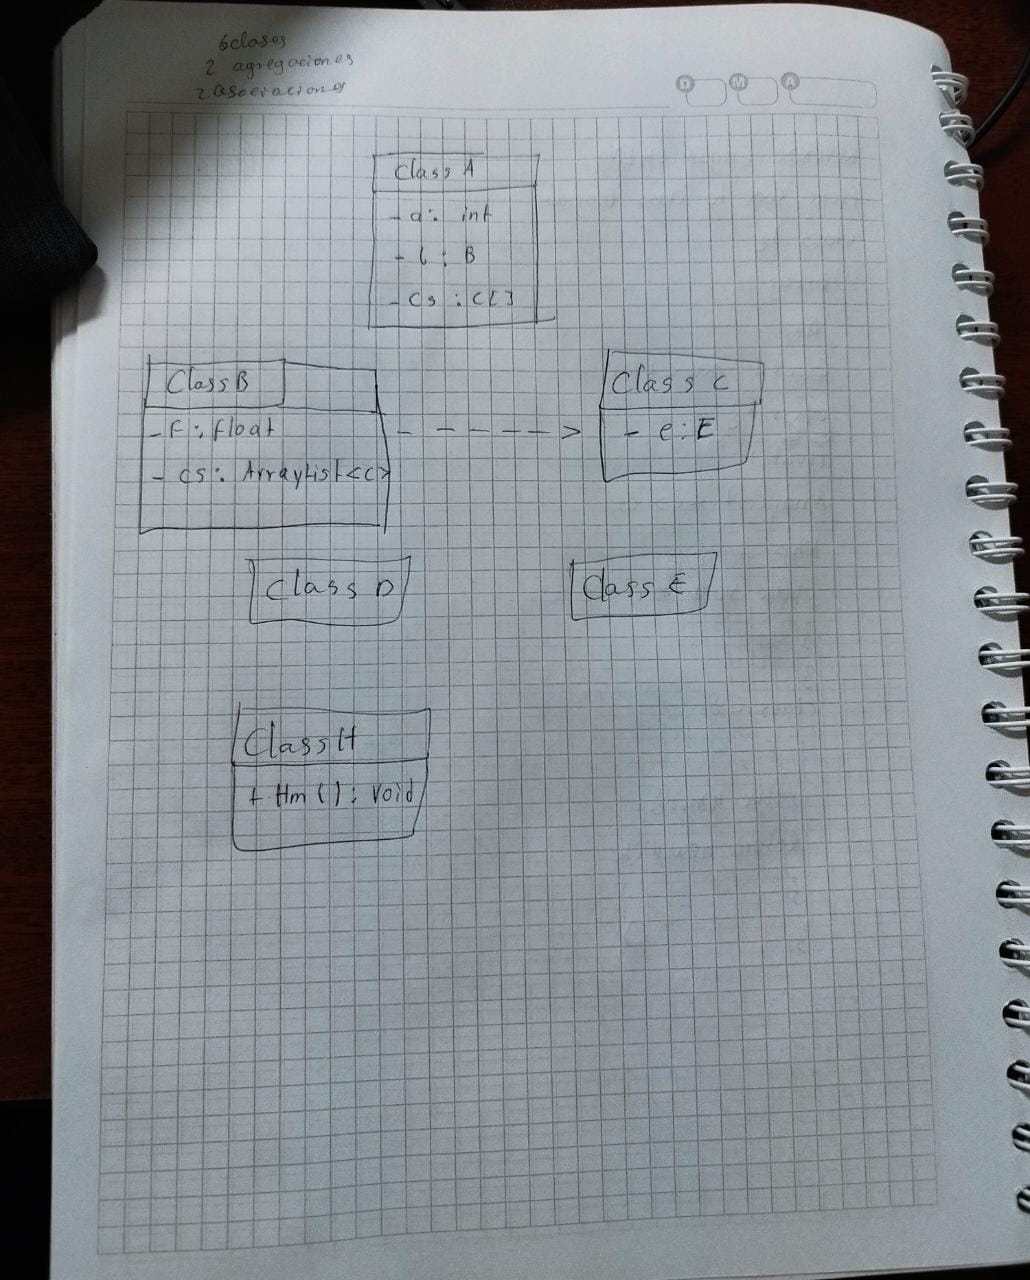 6 clases
2 agregaciones
2 asociaciones
D M A
Class A
- a: int
- b: B
- Cs: C[]
Class B
- F: float
- cs: ArrayList<C>
Class C
- e: E
Class D
Class E
Class H
+ Hm(): void